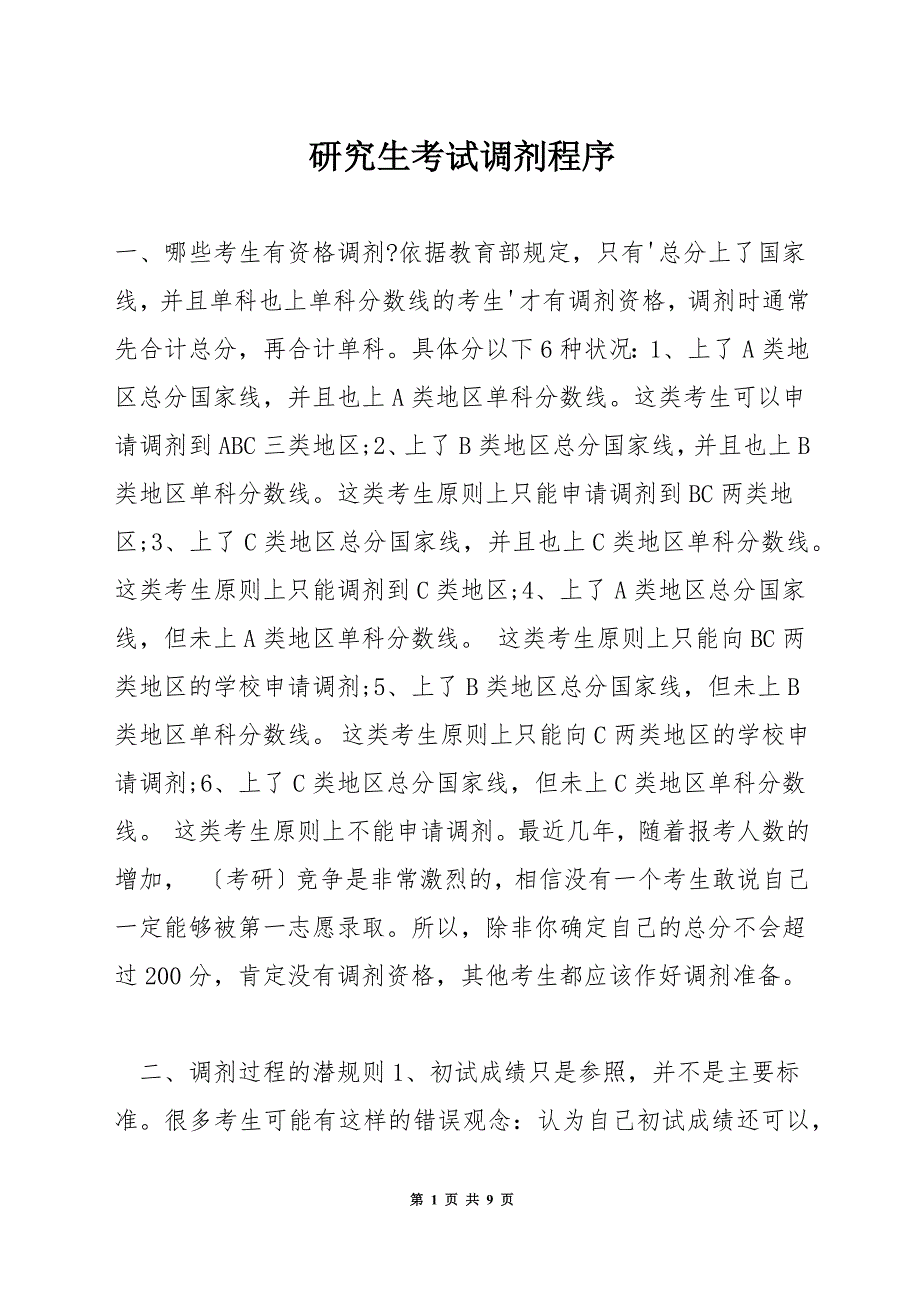 研究生考试调剂程序
一、哪些考生有资格调剂?依据教育部规定，只有'总分上了国家
线，并且单科也上单科分数线的考生'才有调剂资格，调剂时通常
先合计总分，再合计单科。具体分以下6种状况：1、上了A类地
区总分国家线，并且也上A类地区单科分数线。这类考生可以申
请调剂到ABC三类地区;2、上了B类地区总分国家线，并且也上B
类地区单科分数线。这类考生原则上只能申请调剂到BC两类地
区;3、上了C类地区总分国家线，并且也上C类地区单科分数线。
这类考生原则上只能调剂到C类地区;4、上了A类地区总分国家
线，但未上A类地区单科分数线。 这类考生原则上只能向BC两
类地区的学校申请调剂;5、上了B类地区总分国家线，但未上B
类地区单科分数线。 这类考生原则上只能向C两类地区的学校申
请调剂;6、上了C类地区总分国家线，但未上C类地区单科分数
线。 这类考生原则上不能申请调剂。最近几年，随着报考人数的
增加， 〔考研〕竞争是非常激烈的，相信没有一个考生敢说自己
一定能够被第一志愿录取。所以，除非你确定自己的总分不会超
过200分，肯定没有调剂资格，其他考生都应该作好调剂准备。
二、调剂过程的潜规则1、初试成绩只是参照，并不是主要标
准。很多考生可能有这样的错误观念：认为自己初试成绩还可以，
第 1 页 共 9 页